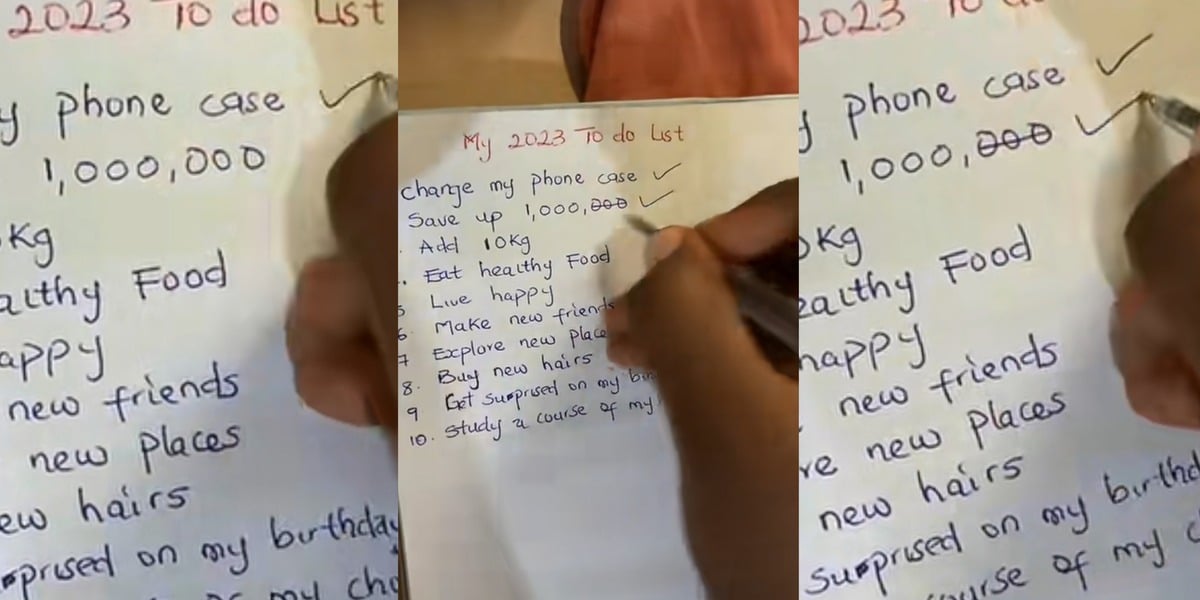 2023 To do List
y phone case ✓
1,000,000
Kg
althy Food
appy
new friends
new places
ew hairs
prised on my birthday
my cho
My 2023 To do List
Change my phone case ✓
Save up 1,000,000 ✓
Add 10Kg
Eat healthy Food
5 Live happy
6. Make new friends
7 Explore new place
8. Buy new hairs
9 Get surprised on my bir
10. Study a course of my
2023 To do
y phone case ✓
1,000,000 ✓
Kg
ealthy Food
happy
new friends
re new places
new hairs
surprised on my birthd
course of my c